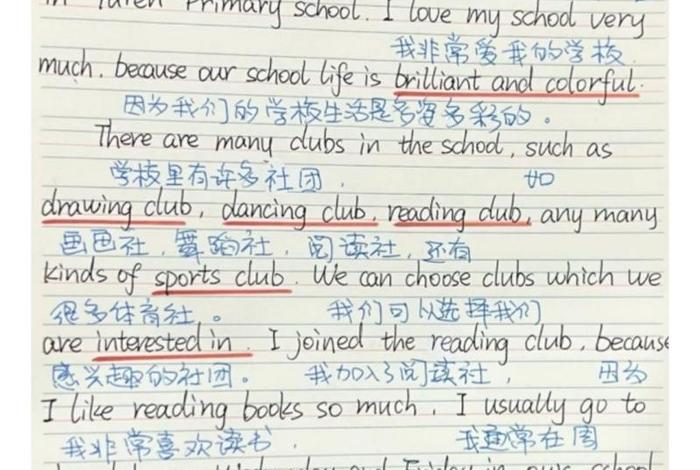 Primary school. I love my school very
我非常爱我的学校
much. because our school life is brilliant and colorful.
因为我们的学校生活是多姿多彩的。
There are many clubs in the school, such as
学校里有许多社团, 如
drawing club, dancing club, reading club, any many
画画社,舞蹈社,阅读社,还有
kinds of sports club. We can choose clubs which we
很多体育社。 我们可以选择我们
are interested in. I joined the reading club, because
感兴趣的社团。 我加入了阅读社, 因为
I like reading books so much. I usually go to
我非常喜欢读书. 我通常在周